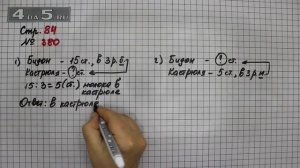 4da5.ru
Стр. 84
№ 380
1) Бидон - 15 ст., в 3 р. б.
Кастрюля - ? ст.
15 : 3 = 5 (ст.) молока в
кастрюле
Ответ: в кастрюле
2) Бидон - ? ст.
Кастрюля - 5 ст., в 3 р. м.